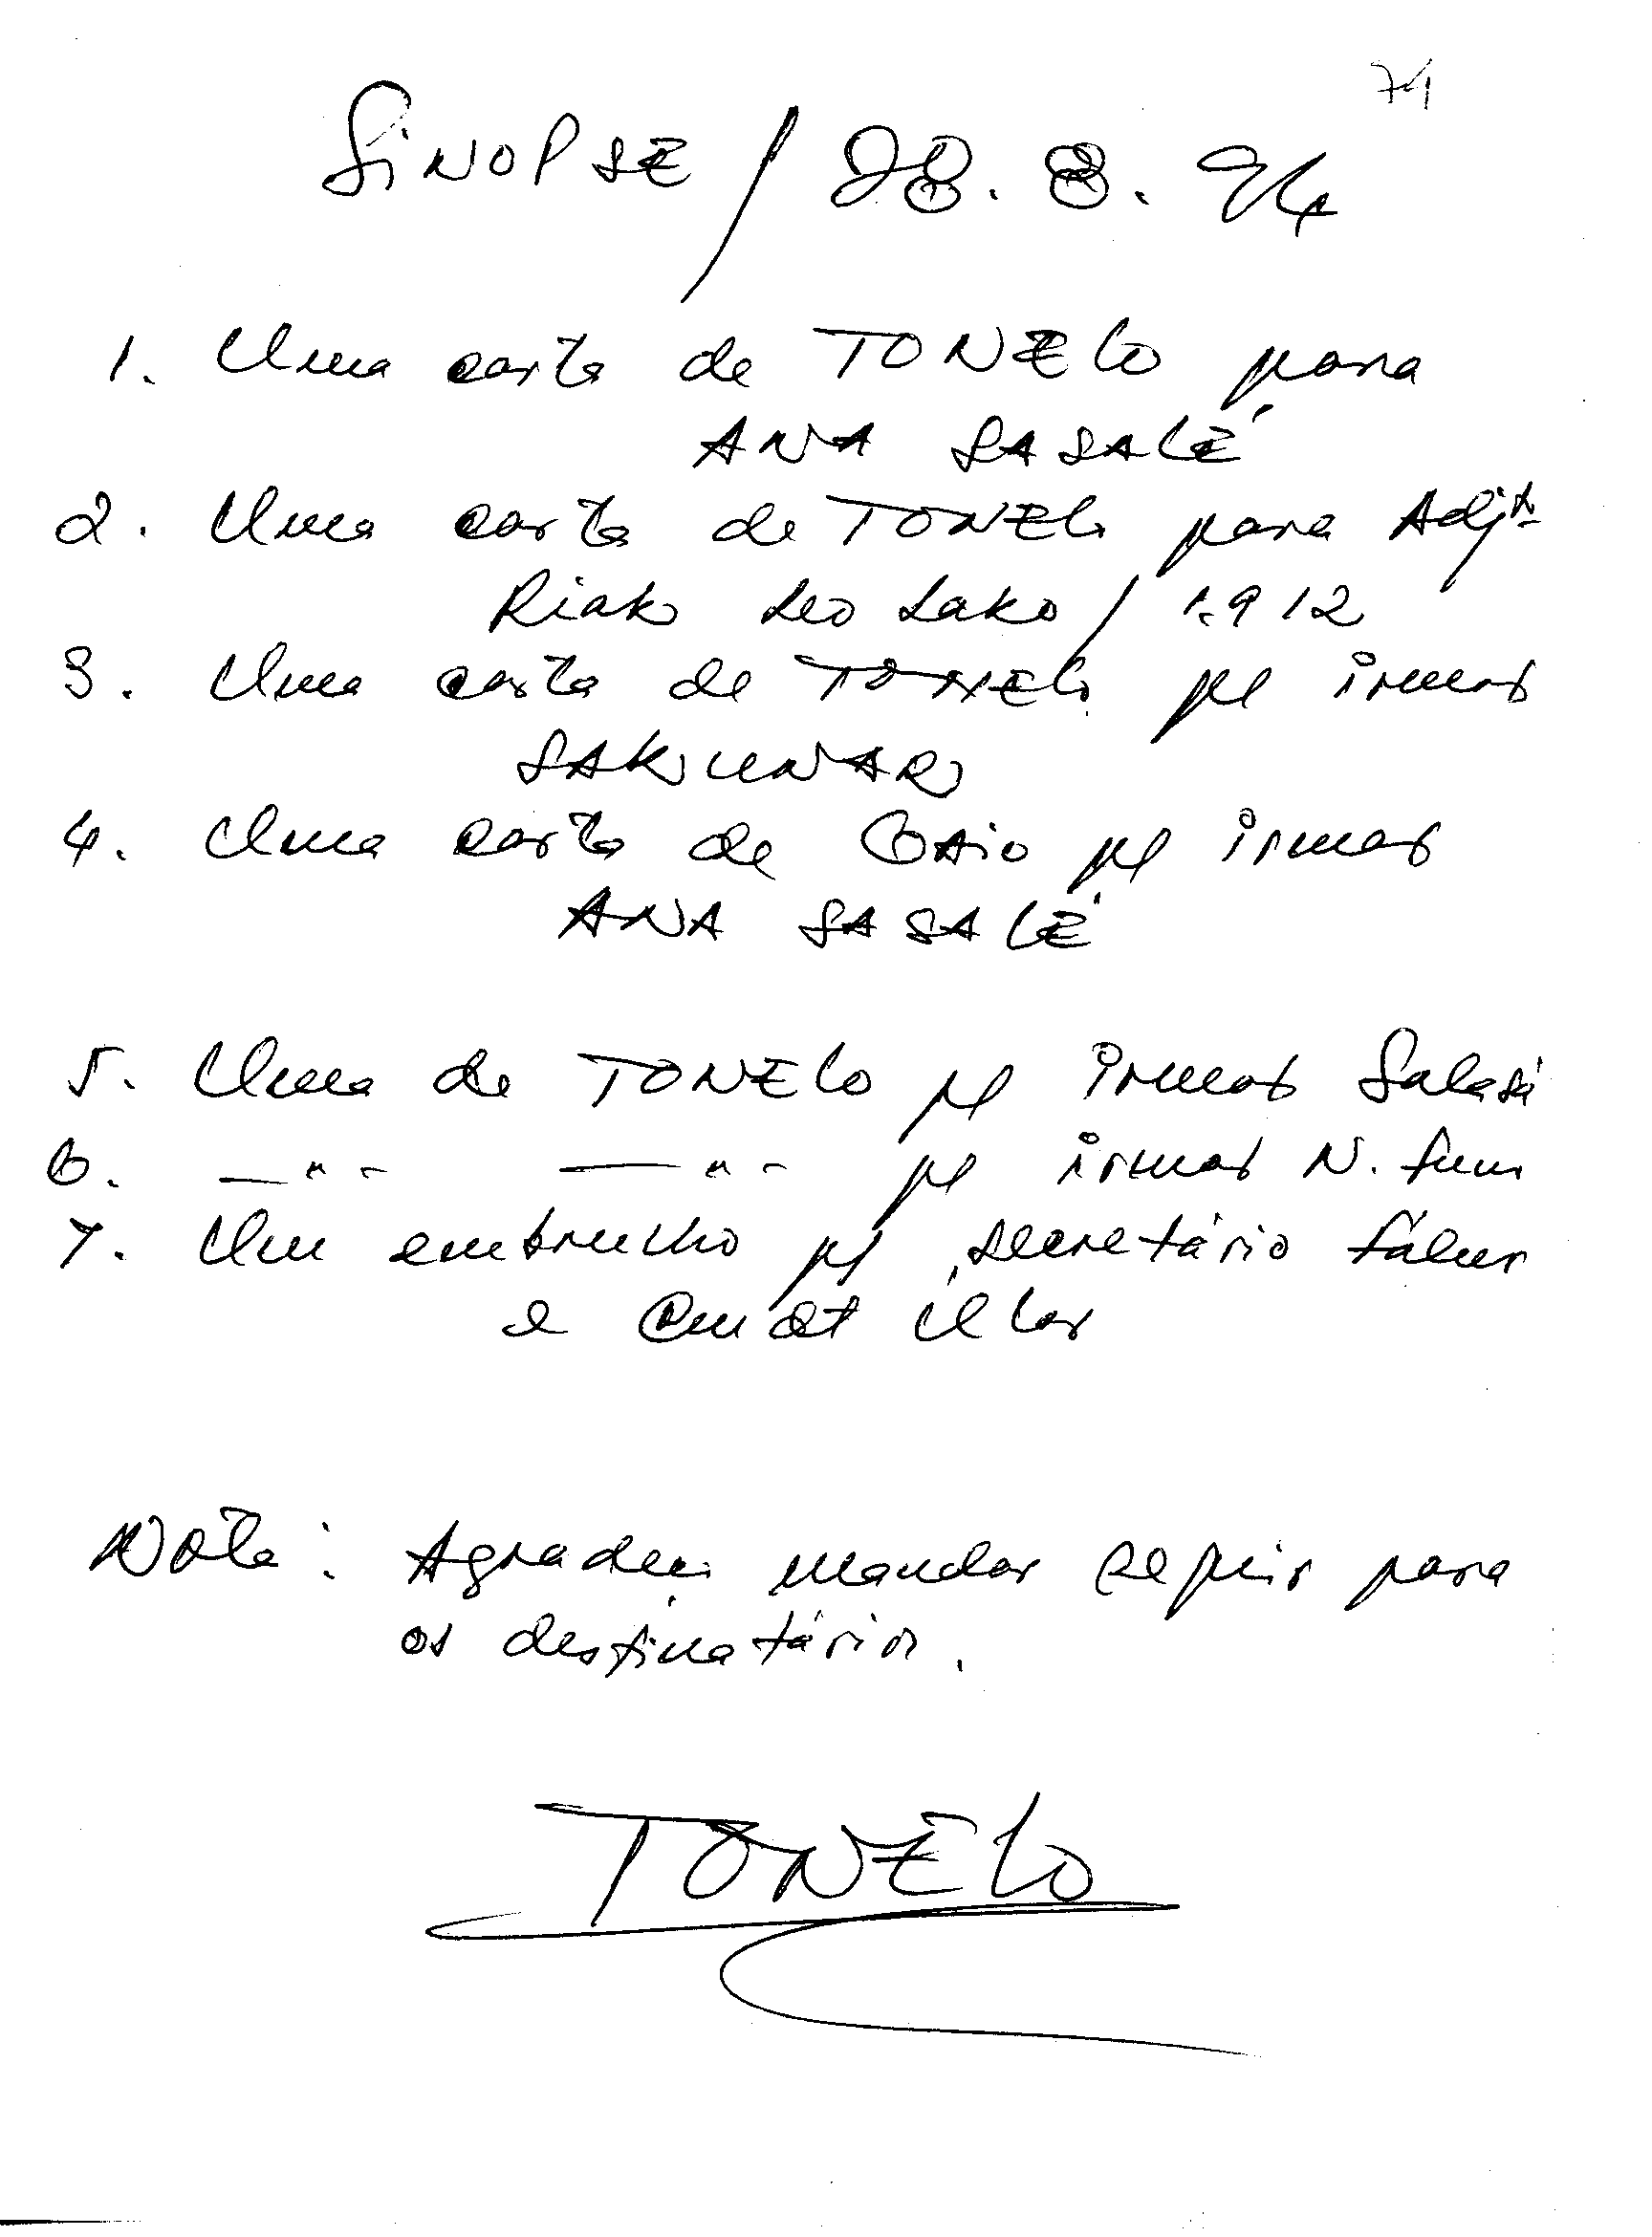 74
SINOPSE / 28.8.94
1. Uma carta de TONELO para
ANA SASALÉ
2. Uma carta de TONELO para Adjto
Riak Leo Lako / 1.912
3. Uma carta de TONELO p/ irmão
SAKUNAR
4. Uma carta de GAIO p/ irmão
ANA SASALÉ
5. Uma de TONELO p/ irmão Salasi
6. —"- —"- p/ irmão N.
7. Um embrulho p/ secretário
e
Nota: Agradeci mandar seguir para
os destinatários.
TONELO